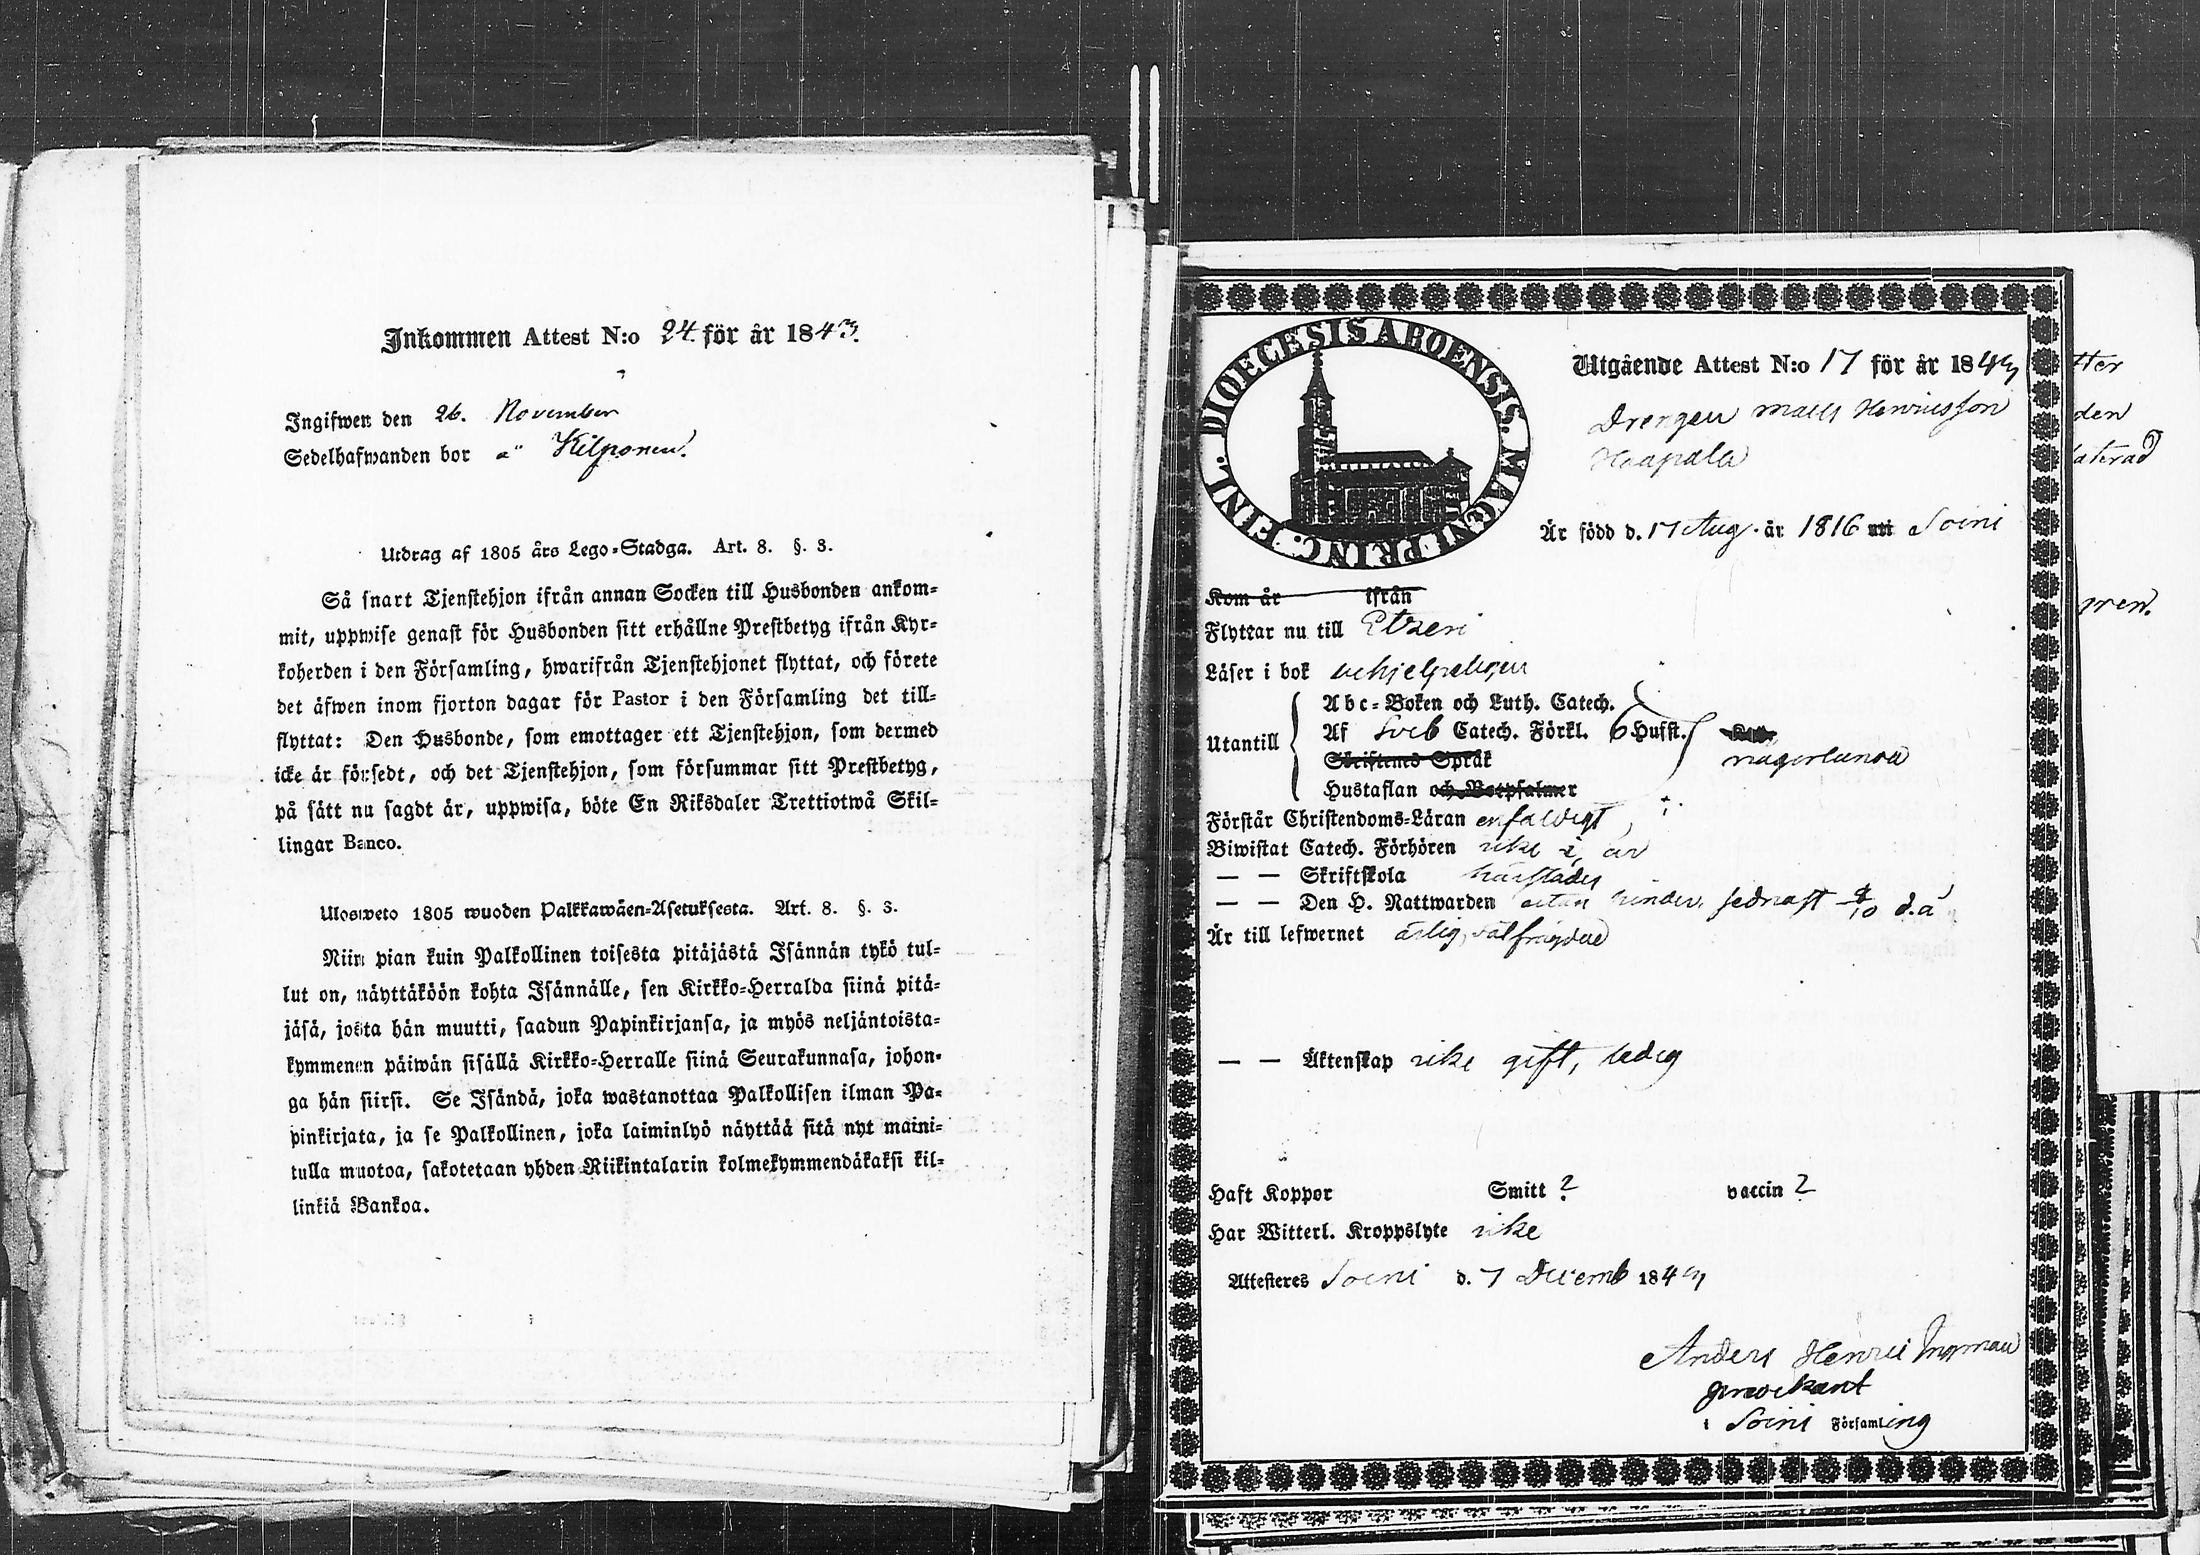 Inkommen Attest N:o 24. för år 1843.
Ingifwen den 26. November
Sedelhafwanden bor å Kilponen.
Utdrag af 1805 års Lego-Stadga. Art. 8. §. 3.
Så snart Tjenstehjon ifrån annan Socken till Husbonden ankom-
mit, uppwise genast för Husbonden sitt erhållne Prestbetyg ifrån Kyr-
koherden i den Församling, hwarifrån Tjenstehjonet flyttat, och förete
det äfwen inom fjorton dagar för Pastor i den Församling det till-
flyttat: Den Husbonde, som emottager ett Tjenstehjon, som dermed
icke är försedt, och det Tjenstehjon, som försummar sitt Prestbetyg,
på sätt nu sagdt är, uppwisa, böte En Riksdaler Trettiotwå Skil-
lingar Banco.
Ulosweto 1805 wuoden Palkkawäen-Asetuksesta. Art. 8. §. 3.
Niin pian kuin Palkollinen toisesta pitäjästä Isännän tykö tul-
lut on, näyttäköön kohta Isännälle, sen Kirkko-Herralda siinä pitä-
jäsä, josta hän muutti, saadun Papinkirjansa, ja myös neljäntoista-
kymmenen päiwän sisällä Kirkko-Herralle siinä Seurakunnasa, johon-
ga hän siirsi. Se Isändä, joka wastanottaa Palkollisen ilman Pa-
pinkirjata, ja se Palkollinen, joka laiminlyö näyttää sitä nyt maini-
tulla muotoa, sakotetaan yhden Riikintalarin kolmekymmendäkaksi kil-
linkiä Bankoa.
DIOECESIS ABOENSIS. MAGNI PRINC. FINL.
Utgående Attest N:o 17 för år 1843
Drengen Matts Henricsson
Haapala
Är född d. 17 Aug. år 1816 uti Soini
Kom år ifrån
Flyttar nu till Etseri
Läser i bok
Abc-Boken och Luth. Catech.
Utantill Af Sveb Catech. Förkl. 6 Hufst.
någorlunda
Skriftens Språk
Hustaflan och Botpsalmer
Förstår Christendoms-Läran enfaldigt
Biwistat Catech. Förhören icke i år
— — Skriftskola härstädes
— — Den H. Nattwarden utan hinder, sednast 8/10 d.å
Är till lefwernet ärlig, välfrägdad
— — Äktenskap icke gift, ledig
Haft Koppor Smitt ? vaccin ?
Har Witterl. Kroppslyte icke
Attesteres Soini d. 7 Decemb 1843
Anders Henric Ingman
predikant
i Soini Församling
den